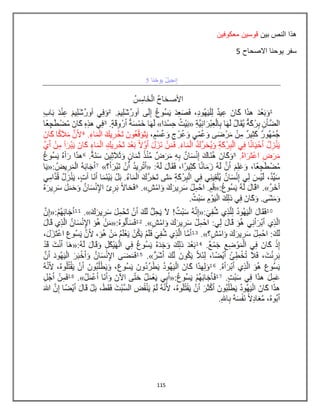 هذا النص بين قوسين معكوفين
سفر يوحنا الاصحاح 5
إنجيل يوحنا 5
الأصحَاحُ الْخَامِسُ
1وَبَعْدَ هذَا كَانَ عِيدٌ لِلْيَهُودِ، فَصَعِدَ يَسُوعُ إِلَى أُورُشَلِيمَ. 2وَفِي أُورُشَلِيمَ عِنْدَ بَابِ
الضَّأْنِ بِرْكَةٌ يُقَالُ لَهَا بِالْعِبْرَانِيَّةِ «بَيْتُ حِسْدَا» لَهَا خَمْسَةُ أَرْوِقَةٍ. 3فِي هذِهِ كَانَ مُضْطَجِعًا
جُمْهُورٌ كَثِيرٌ مِنْ مَرْضَى وَعُمْيٍ وَعُرْجٍ وَعُسْمٍ، يَتَوَقَّعُونَ تَحْرِيكَ الْمَاءِ. 4لأَنَّ مَلاَكًا كَانَ
يَنْزِلُ أَحْيَانًا فِي الْبِرْكَةِ وَيُحَرِّكُ الْمَاءَ. فَمَنْ نَزَلَ أَوَّلاً بَعْدَ تَحْرِيكِ الْمَاءِ كَانَ يَبْرَأُ مِنْ أَيِّ
مَرَضٍ اعْتَرَاهُ. 5وَكَانَ هُنَاكَ إِنْسَانٌ بِهِ مَرَضٌ مُنْذُ ثَمَانٍ وَثَلاَثِينَ سَنَةً. 6هذَا رَآهُ يَسُوعُ
مُضْطَجِعًا، وَعَلِمَ أَنَّ لَهُ زَمَانًا كَثِيرًا، فَقَالَ لَهُ: «أَتُرِيدُ أَنْ تَبْرَأَ؟» 7أَجَابَهُ الْمَرِيضُ: «يَا
سَيِّدُ، لَيْسَ لِي إِنْسَانٌ يُلْقِينِي فِي الْبِرْكَةِ مَتَى تَحَرَّكَ الْمَاءُ. بَلْ بَيْنَمَا أَنَا آتٍ، يَنْزِلُ قُدَّامِي
آخَرُ». 8قَالَ لَهُ يَسُوعُ: «قُمِ. احْمِلْ سَرِيرَكَ وَامْشِ». 9فَحَالاً بَرِئَ الإِنْسَانُ وَحَمَلَ سَرِيرَهُ
وَمَشَى. وَكَانَ فِي ذلِكَ الْيَوْمِ سَبْتٌ.
10فَقَالَ الْيَهُودُ لِلَّذِي شُفِيَ: «إِنَّهُ سَبْتٌ! لاَ يَحِلُّ لَكَ أَنْ تَحْمِلَ سَرِيرَكَ». 11أَجَابَهُمْ: «إِنَّ
الَّذِي أَبْرَأَنِي هُوَ قَالَ لِي: احْمِلْ سَرِيرَكَ وَامْشِ». 12فَسَأَلُوهُ: «مَنْ هُوَ الإِنْسَانُ الَّذِي قَالَ
لَكَ: احْمِلْ سَرِيرَكَ وَامْشِ؟». 13أَمَّا الَّذِي شُفِيَ فَلَمْ يَكُنْ يَعْلَمُ مَنْ هُوَ، لأَنَّ يَسُوعَ اعْتَزَلَ،
إِذْ كَانَ فِي الْمَوْضِعِ جَمْعٌ. 14بَعْدَ ذلِكَ وَجَدَهُ يَسُوعُ فِي الْهَيْكَلِ وَقَالَ لَهُ: «هَا أَنْتَ قَدْ
بَرِئْتَ، فَلاَ تُخْطِئْ أَيْضًا، لِئَلاَّ يَكُونَ لَكَ أَشَرُّ». 15فَمَضَى الإِنْسَانُ وَأَخْبَرَ الْيَهُودَ أَنَّ
يَسُوعَ هُوَ الَّذِي أَبْرَأَهُ. 16وَلِهذَا كَانَ الْيَهُودُ يَطْرُدُونَ يَسُوعَ، وَيَطْلُبُونَ أَنْ يَقْتُلُوهُ، لأَنَّهُ
عَمِلَ هذَا فِي سَبْتٍ. 17فَأَجَابَهُمْ يَسُوعُ: «أَبِي يَعْمَلُ حَتَّى الآنَ وَأَنَا أَعْمَلُ». 18فَمِنْ أَجْلِ
هذَا كَانَ الْيَهُودُ يَطْلُبُونَ أَكْثَرَ أَنْ يَقْتُلُوهُ، لأَنَّهُ لَمْ يَنْقُضِ السَّبْتَ فَقَطْ، بَلْ قَالَ أَيْضًا إِنَّ اللهَ
أَبُوهُ، مُعَادِلاً نَفْسَهُ بِاللهِ.
115